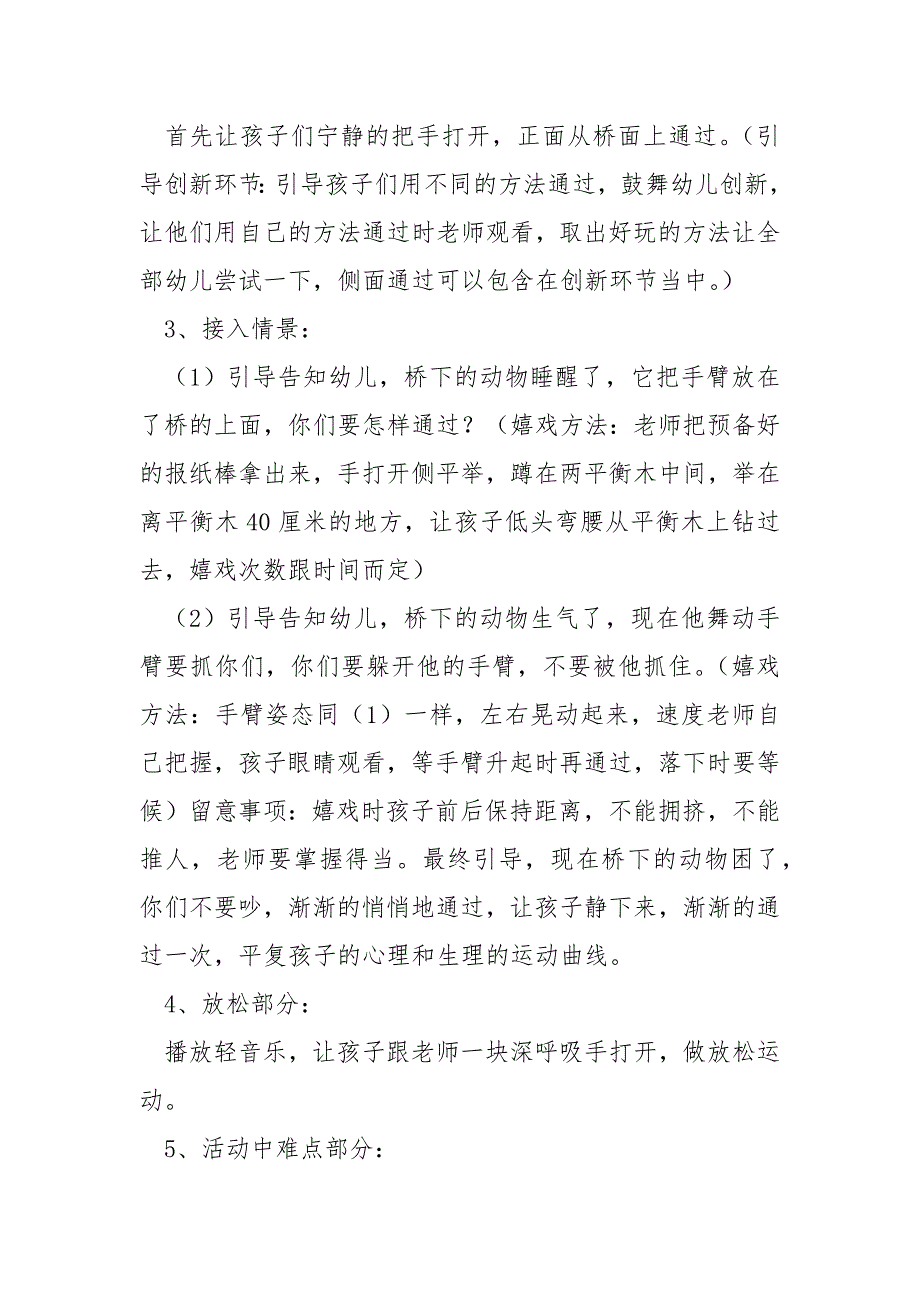 首先让孩子们宁静的把手打开，正面从桥面上通过。（引
导创新环节：引导孩子们用不同的方法通过，鼓舞幼儿创新，
让他们用自己的方法通过时老师观看，取出好玩的方法让全
部幼儿尝试一下，侧面通过可以包含在创新环节当中。）
3、接入情景：
（1）引导告知幼儿，桥下的动物睡醒了，它把手臂放在
了桥的上面，你们要怎样通过？（嬉戏方法：老师把预备好
的报纸棒拿出来，手打开侧平举，蹲在两平衡木中间，举在
离平衡木 40 厘米的地方，让孩子低头弯腰从平衡木上钻过
去，嬉戏次数跟时间而定）
（2）引导告知幼儿，桥下的动物生气了，现在他舞动手
臂要抓你们，你们要躲开他的手臂，不要被他抓住。（嬉戏
方法：手臂姿态同（1）一样，左右晃动起来，速度老师自
己把握，孩子眼睛观看，等手臂升起时再通过，落下时要等
候）留意事项：嬉戏时孩子前后保持距离，不能拥挤，不能
推人，老师要掌握得当。最终引导，现在桥下的动物困了，
你们不要吵，渐渐的悄悄地通过，让孩子静下来，渐渐的通
过一次，平复孩子的心理和生理的运动曲线。
4、放松部分：
播放轻音乐，让孩子跟老师一块深呼吸手打开，做放松运
动。
5、活动中难点部分：